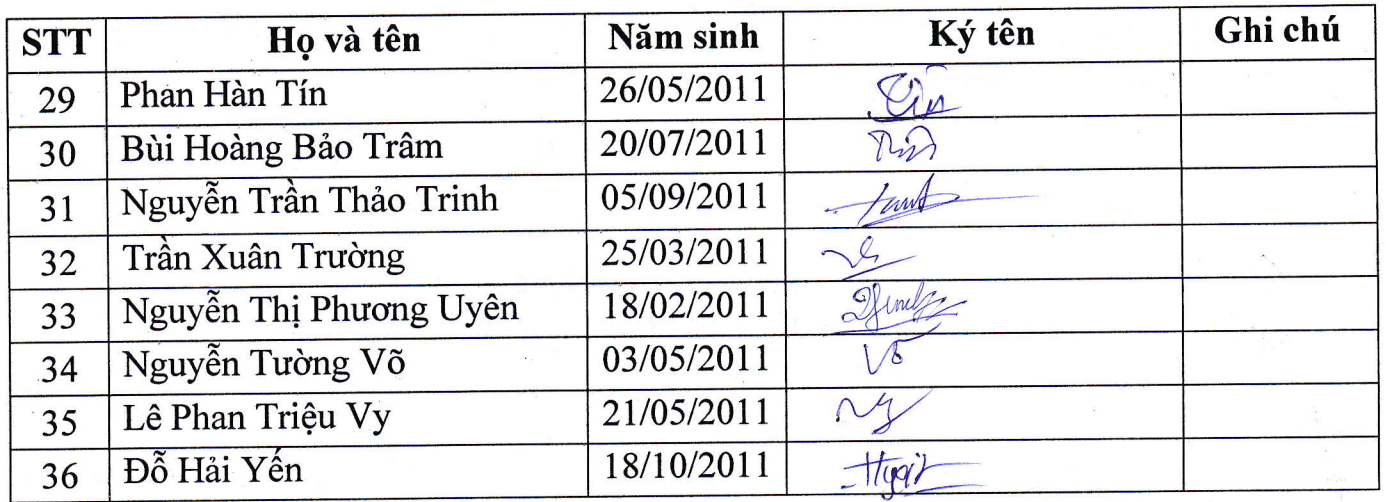 STT Họ và tên Năm sinh Ký tên Ghi chú
29 Phan Hàn Tín 26/05/2011
30 Bùi Hoàng Bảo Trâm 20/07/2011
31 Nguyễn Trần Thảo Trinh 05/09/2011
32 Trần Xuân Trường 25/03/2011
33 Nguyễn Thị Phương Uyên 18/02/2011
34 Nguyễn Tường Võ 03/05/2011 Võ
35 Lê Phan Triệu Vy 21/05/2011
36 Đỗ Hải Yến 18/10/2011